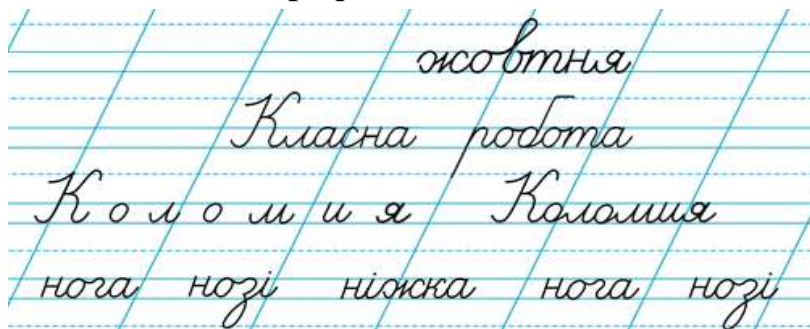 жовтня
Класна робота
К о л о м и я Коломия
нога нозі ніжка нога нозі